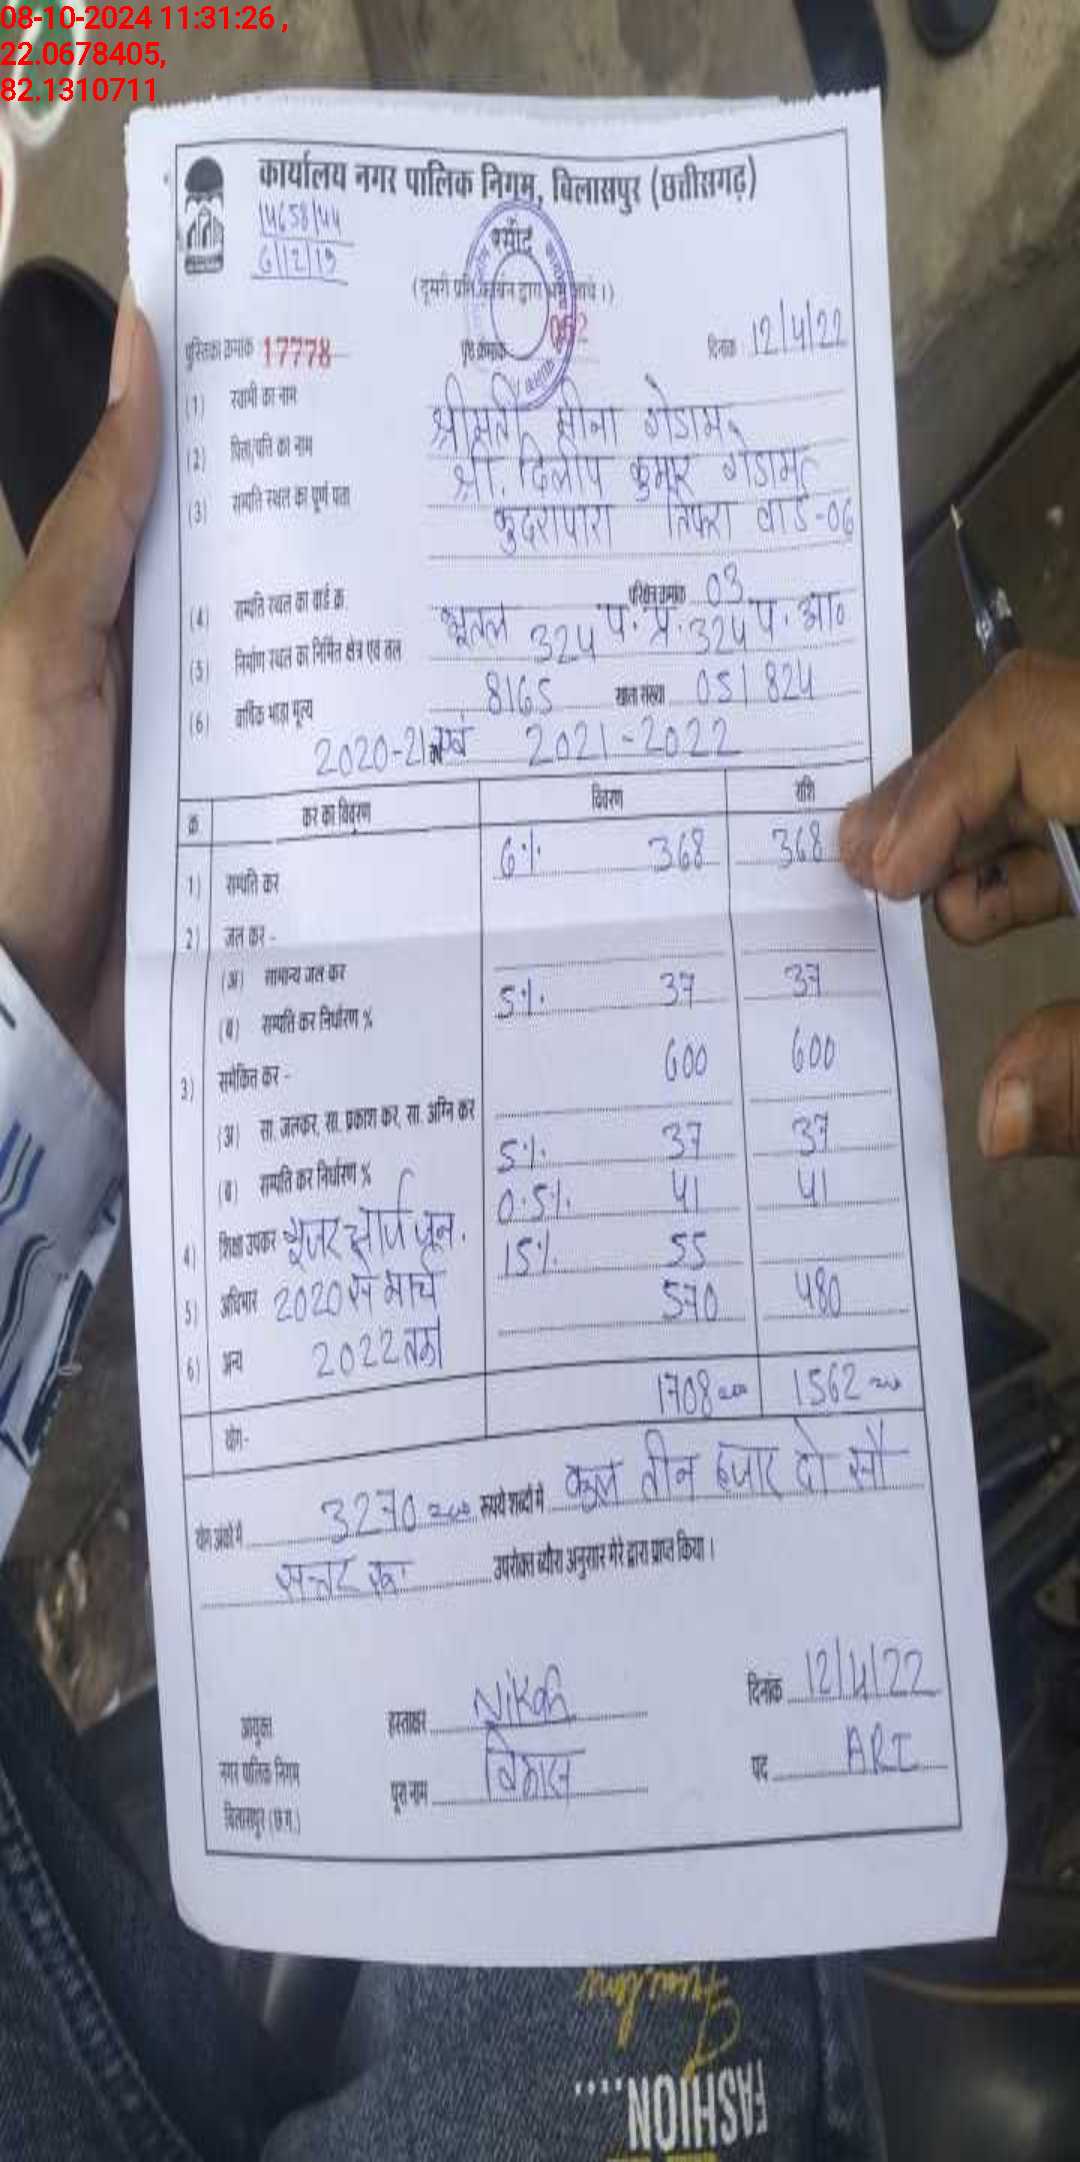 08-10-2024 11:31:26 ,
22.0678405,
82.1310711
कार्यालय नगर पालिक निगम, बिलासपुर (छत्तीसगढ़)
14658/44
6/12/19
रसीद
(दूसरी प्रति कार्बन द्वारा भरी जावे।)
पुस्तिका क्रमांक 17778 पृष्ठ क्रमांक 052 दिनांक 12/4/22
(1) स्वामी का नाम श्रीमती मीना गेडाम
(2) पिता/पति का नाम श्री. दिलीप कुमार गेडाम
(3) सम्पति स्थल का पूर्ण पता कुदरापारा तिफरा वार्ड-06
(4) सम्पति स्थल का वार्ड क्र. परिक्षेत्र क्रमांक 03
(5) निर्माण स्थल का निर्मित क्षेत्र एवं तल भूतल 324 प. प्र. 324 प. आ०
(6) वार्षिक भाड़ा मूल्य 8165 खाता संख्या 051824
2020-21 एवं 2021-2022
क्र कर का विवरण विवरण राशि
1) सम्पति कर 6% 368 368
2) जल कर -
(अ) सामान्य जल कर
(ब) सम्पति कर निर्धारण % 5% 37 37
3) समेकित कर - 600 600
(अ) सा. जलकर, सा. प्रकाश कर, सा. अग्नि कर
(ब) सम्पति कर निर्धारण % 5% 37 37
4) शिक्षा उपकर 0.5% 41 41
यूजर चार्ज जून.
5) अधिभार 2020 से मार्च 15% 55
6) अन्य 2022 तक 570 480
योग- 1708 1562
योग अंको में 3270 रूपये शब्दों में कुल तीन हजार दो सौ
सत्तर रू. उपरोक्त ब्यौरा अनुसार मेरे द्वारा प्राप्त किया।
आयुक्त हस्ताक्षर दिनांक 12/4/22
नगर पालिक निगम पूरा नाम विकास पद ARI
बिलासपुर (छ.ग.)
FASHION....